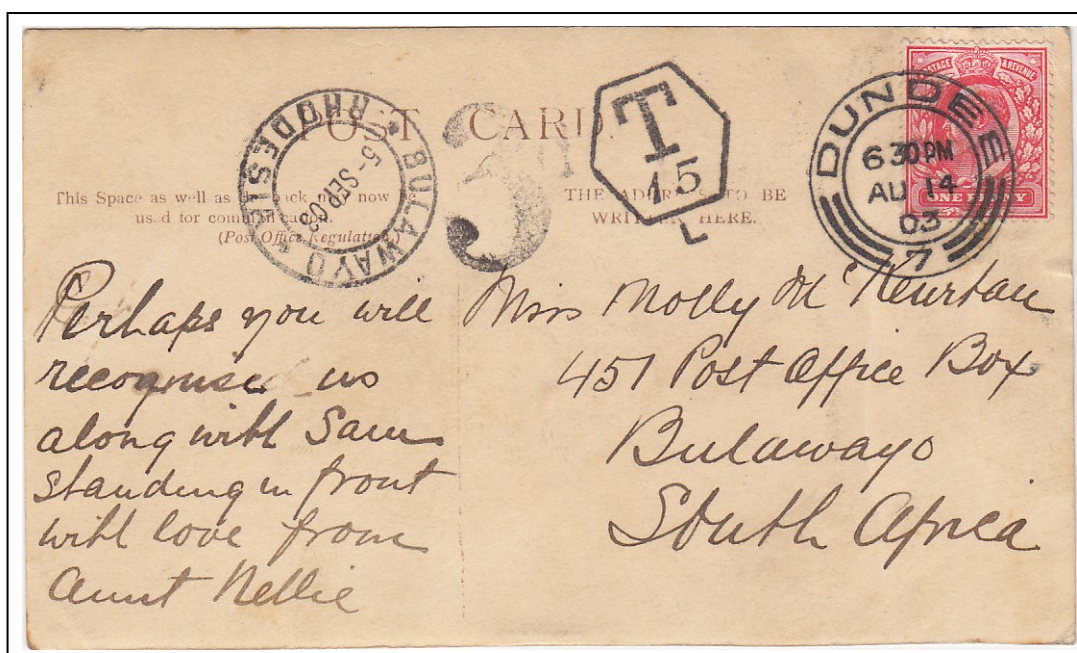 POST CARD.
This Space as well as back may now
used for communication.
(Post Office Regulation.)
THE ADDRESS TO BE
WRITTEN HERE.
BULAWAYO RHODESIA
5-SEP 03
3D
T
15
L
DUNDEE
6 30 PM
AU 14
03
7
POSTAGE & REVENUE
ONE PENNY
Perhaps you will
recognise us
along with Sam
standing in front
with love from
Aunt Nellie
Miss Molly
451 Post Office Box
Bulawayo
South Africa